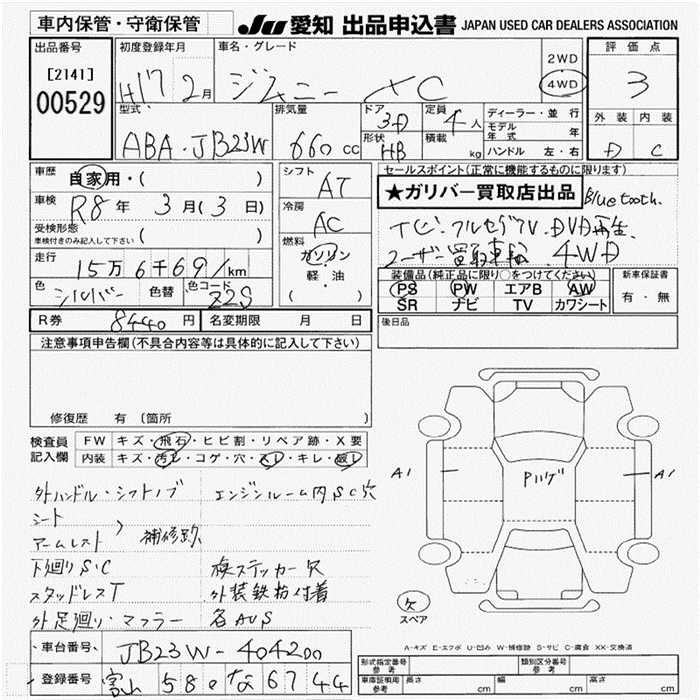 車内保管・守衛保管
JU 愛知 出品申込書 JAPAN USED CAR DEALERS ASSOCIATION
出品番号
[2141]
00529
初度登録年月
H17 2月
車名・グレード
ジムニー XC
2WD
4WD
評価点
3
外装 内装
D C
型式
ABA・JB23W
排気量
660 cc
ドア
3D
形状
HB
定員
4人
積載
kg
ディーラー・並行
モデル年式 年
ハンドル 左・右
車歴
自家用・( )
車検
R8年 3月(3日)
受検形態
車検付きのみ記入して下さい ( )
走行
15万6千691km
色
シルバー
色替
色コード
Z2S
シフト
AT
冷房
AC
燃料
ガソリン
軽・油
( )
セールスポイント(正常に機能するものに限ります)
★ガリバー買取店出品
Bluetooth.
ナビ・フルセグTV・DVD再生
ユーザー買取車輌 4WD
装備品(純正品に限り○をつけてください)
PS PW エアB AW
SR ナビ TV カワシート
新車保証書
有・無
R券 8440円
名変期限 月 日
後日品
注意事項申告欄(不具合内容等は具体的に記入して下さい)
修復歴 有 (箇所
検査員
記入欄
FW キズ・飛石・ヒビ割・リペア跡・X要
内装 キズ・汚レ・コゲ・穴・スレ・キレ・破レ
外ハンドル・シフトノブ
エンジンルーム内SC穴
シート
アームレスト
補修跡
下廻りS・C
スタッドレスT
外足廻り・マフラー
検ステッカー欠
外装鉄粉付着
各AUS
A1
Pハゲ
A1
欠
スペア
A-キズ E-エクボ U-凹み W-補修跡 S-サビ C-腐食 XX-交換済
車台番号
JB23W-404200
登録番号
富山 580 な 6744
形式指定番号
参考
類別区分番号
参考
車庫証明用
参考
長さ cm
幅 cm
高さ cm